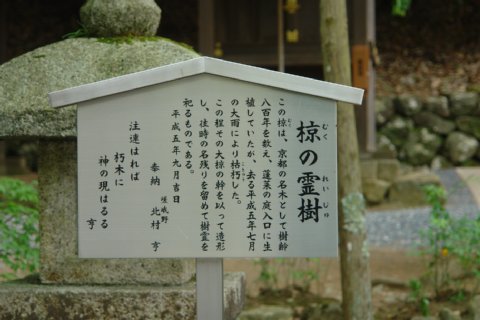 椋の霊樹
むく
れいじゅ
この椋は、京都の名木として樹齢
八百年を数え、蓬莱の庭入口に生
植していたが、去る平成五年七月
の大雨により枯朽した。
この程その大椋の幹を以って造形
し、往時の名残りを留めて樹霊を
祀るものである。
平成五年九月吉日
奉納 嵯峨野 北村 亨
注連はれば
朽木に
神の現はるる
亨